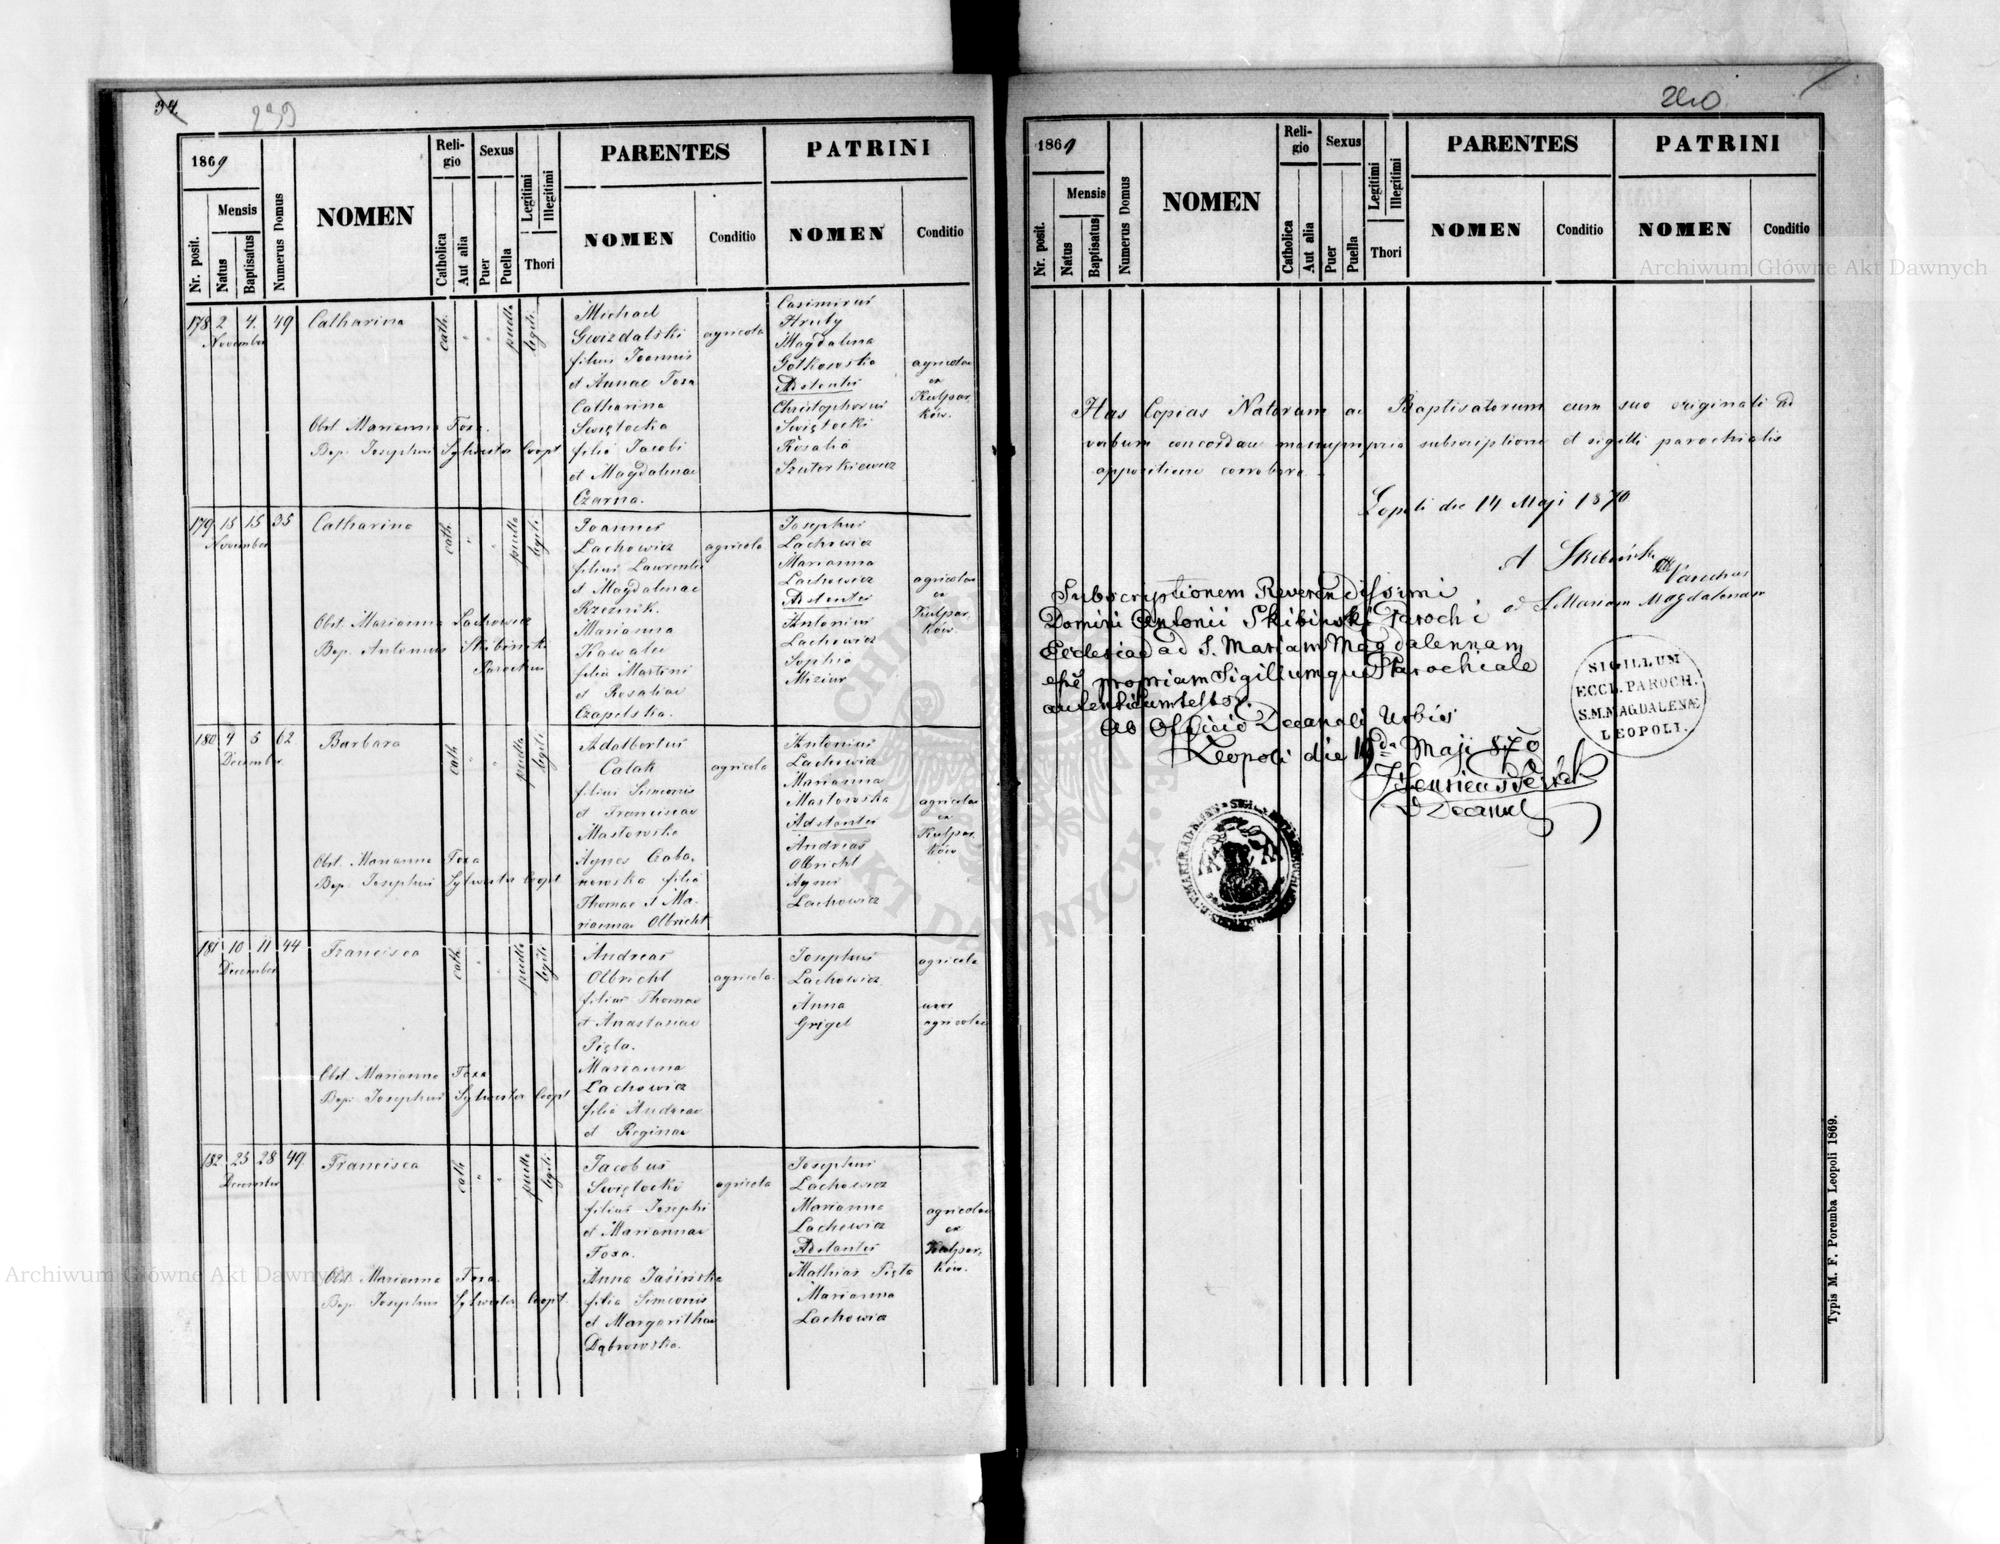 34.
239
1869
Mensis
Nr. posit.
Natus
Baptisatus
Numerus Domus
NOMEN
Religio
Catholica
Aut alia
Sexus
Puer
Puella
Legitimi
Illegitimi
Thori
PARENTES
NOMEN
Conditio
PATRINI
NOMEN
Conditio
178 2 4. 49 Catharina cath. " " puella legiti.
November
Obst. Marianna Foxa.
Bap. Josephus Sylwester Coopt
Michael
Gwizdalski
filius Joannis
et Annae Foxa
Catharina
Swiętocka
filia Jacobi
et Magdalenae
Czarna.
agricola
Casimirus
Hruby
Magdalena
Gotkowska
Adstantes
Christophorus
Swiętocki
Rosalia
Szuterkiewicz
agricolae
ex
Kulpar,
ków.
179 15 15 35 Catharina cath " " puella legiti
November
Obst. Marianna Lachowicz
Bap. Antonius Skibiński
Parochus
Joannes
Lachowicz
filius Laurentii
et Magdalenae
Rzeźnik.
Marianna
Kawalec
filia Martini
et Rosaliae
Czapelska.
agricola
Josephus
Lachowicz
Marianna
Lachowicz
Adstantes
Antonius
Lachowicz
Sophia
Misiur
agricolae
ex
Kulpar,
ków.
180 4 5 62 Barbara cath " " puella legiti
December
Obst. Marianna Foxa
Bap. Josephus Sylwester Coopt
Adalbertus
Catak
filius Simeonis
et Franciscae
Mastowska
Agnes Graba,
nowska filia
Thomae et Ma,
riannae Olbricht
agricola
Antonius
Lachowicz
Marianna
Mastowska
Adstantes
Andreas
Olbricht
Agnes
Lachowicz
agricolae
ex
Kulpar,
ków
181 10 11 44 Francisca cath " " puella legiti
December
Obst. Marianna Foxa
Bap. Josephus Sylwester Coopt
Andreas
Olbricht
filius Thomae
et Anastasiae
Pięta.
Marianna
Lachowicz
filia Andreae
et Reginae
agricola.
Josephus
Lachowicz
Anna
Grigel
agricola
uxor
agricolae
182 23 28 49. Francisca cath " " puella legiti
December
Obst. Marianna Foxa.
Bap. Josephus Sylwester Coopt.
Jacobus
Swiętocki
filius Josephi
et Mariannae
Foxa.
Anna Jasińska
filia Simeonis
et Margarithae
Dąbrowska.
agricola
Josephus
Lachowicz
Marianna
Lachowicz
Adstantes
Mathias Pięta
Marianna
Lachowicz
agricolae
ex
Kulpar,
ków.
240
1869
Mensis
Nr. posit.
Natus
Baptisatus
Numerus Domus
NOMEN
Religio
Catholica
Aut alia
Sexus
Puer
Puella
Legitimi
Illegitimi
Thori
PARENTES
NOMEN
Conditio
PATRINI
NOMEN
Conditio
Has Copias Natorum ac Baptisatorum cum suo originali ad
verbum concordare manupropria subscriptione et sigilli parochialis
appositione corroboro.
Leopoli die 14 Maji 1870
A Skibiński
Parochus
ad S. Mariam Magdalenam
Subscriptionem Reverendissimi
Domini Antonii Skibiński Parochi
Ecclesiae ad S. Mariam Magdalennam
esse propriam Sigillumque Parochiale
autenticum testor.
Ab Officio Decanali Urbis
Leopoli die
Maji 870
Decanus
SIGILLUM
ECCL. PAROCH.
S.M.MAGDALENÆ
LEOPOLI.
Typis M. F. Poremba Leopoli 1869.
Archiwum Główne Akt Dawnych
Archiwum Główne Akt Dawnych